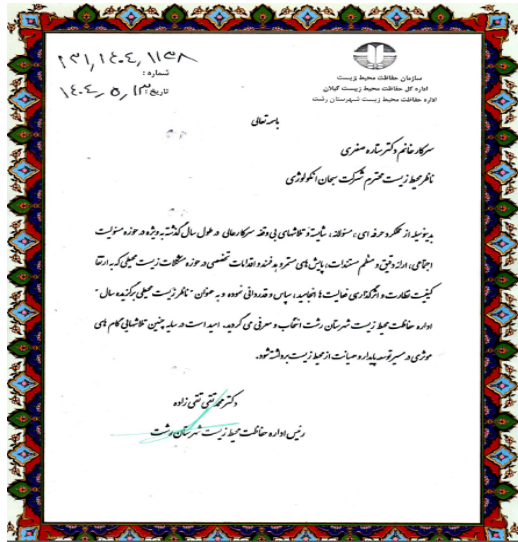 سازمان حفاظت محیط زیست
اداره کل حفاظت محیط زیست گیلان
اداره حفاظت محیط زیست شهرستان رشت
شماره : ۲۳۱/۱۴۰۴/۱۱۳۸
تاریخ : ۱۴۰۴/۵/۱۳
باسمه تعالی
سرکار خانم دکتر ستاره صفری
ناظر محیط زیست محترم شرکت سبحان انکولوژی
بدینوسیله از عملکرد حرفه ای ، مسئولانه ، شایسته و تلاشهای بی وقفه سرکارعالی در طول سال گذشته به ویژه در حوزه مسئولیت
اجتماعی، ارائه دقیق و منظم مستندات، پایش های مستمر و هدفمند و اقدامات تخصصی در حوزه مشکلات زیست محیطی که به ارتقا
کیفیت نظارت و اثرگذاری فعالیت ها انجامید، سپاس و قدردانی نموده و به عنوان " ناظر زیست محیطی برگزیده سال "
اداره حفاظت محیط زیست شهرستان رشت انتخاب و معرفی می گردید. امید است در سایه چنین تلاشهایی گام های
موثری در مسیر توسعه پایدار و صیانت از محیط زیست برداشته شود.
دکتر محمد تقی تقی زاده
رئیس اداره حفاظت محیط زیست شهرستان رشت